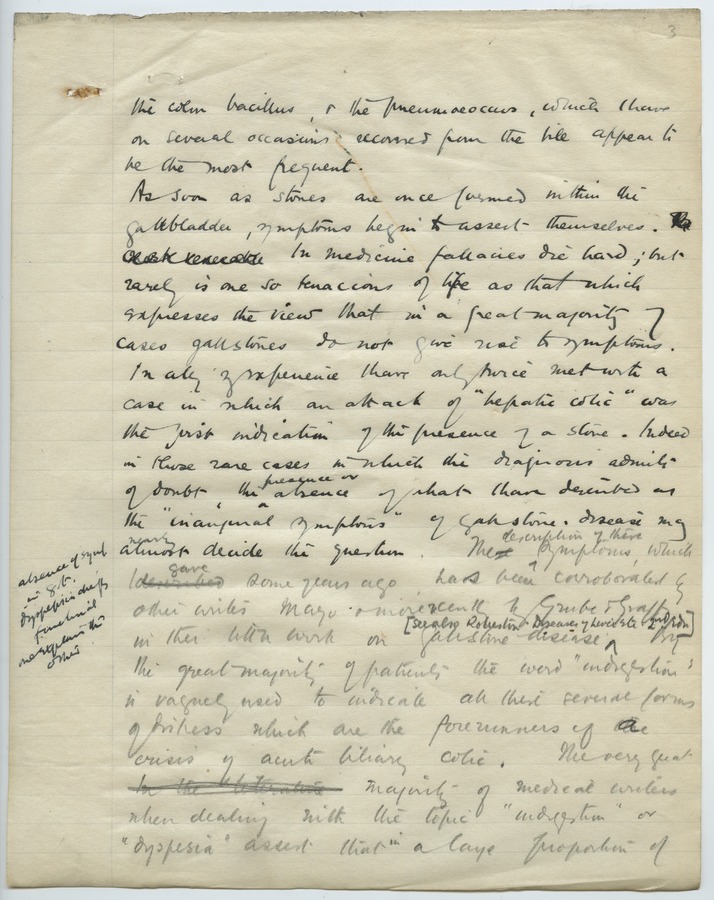 3
the colon bacillus, & the pneumococcus, which I have
on several occasions recovered from the bile appear to
be the most frequent.
As soon as stones are once formed within the
gallbladder, symptoms begin to assert themselves.
In medicine fallacies die hard; but
rarely is one so tenacious of life as that which
expresses the view that in a great majority of
cases gallstones do not give rise to symptoms.
In all my experience I have only twice met with a
case in which an attack of "hepatic colic" was
the first indication of the presence of a stone. Indeed
in those rare cases in which the diagnosis admits
presence or
of doubt, the absence of what I have described as
the "inaugural symptoms" of gall stone disease may
nearly description of these
almost decide the question. The symptoms, which
gave
I described some years ago, has been corroborated by
other writers Mayo & more recently by
[see also Robertson Diseases of Liver
in their work on gallstone disease. By
the great majority of patients the word "indigestion"
is vaguely used to indicate all these several forms
of distress which are the forerunners of a
crisis of acute biliary colic. The very great
In the literature majority of medical writers
when dealing with the topic "indigestion" or
"dyspepsia" assert that in a large proportion of
absence of sympt
in g.b.
Dyspepsia chiefly
functional
one explains the
other